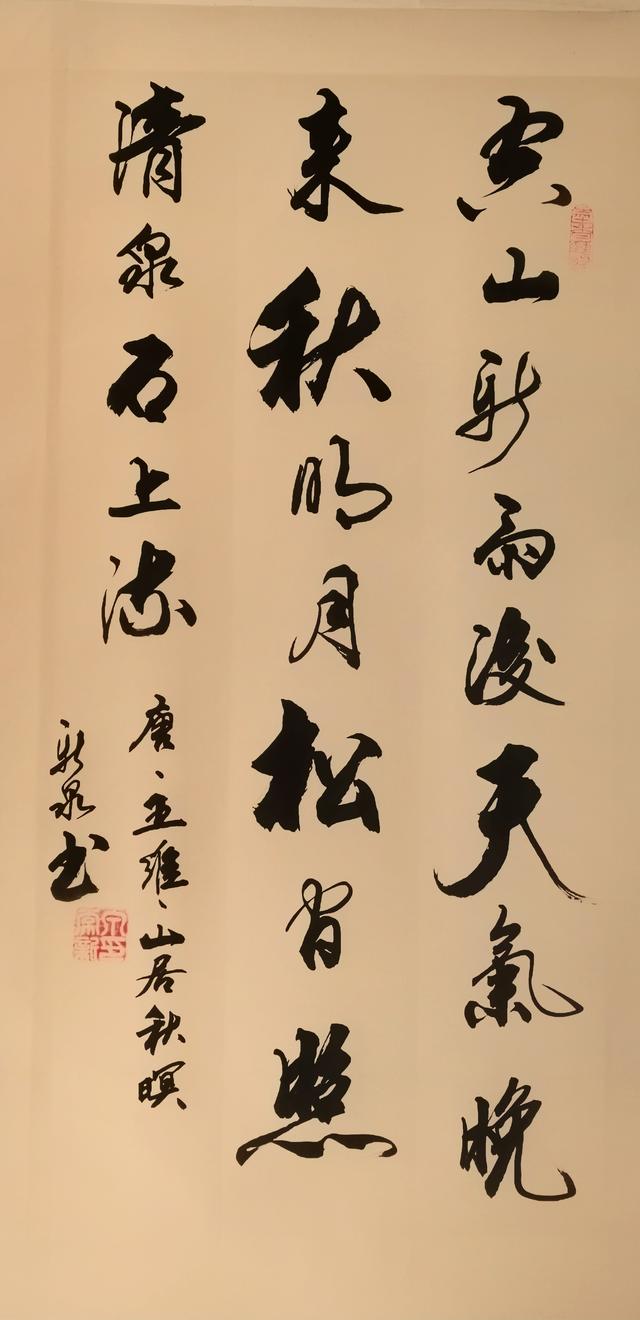 空山新雨後天氣晚
来秋明月松间照
清泉石上流
唐、王維、山居秋暝
新泉书